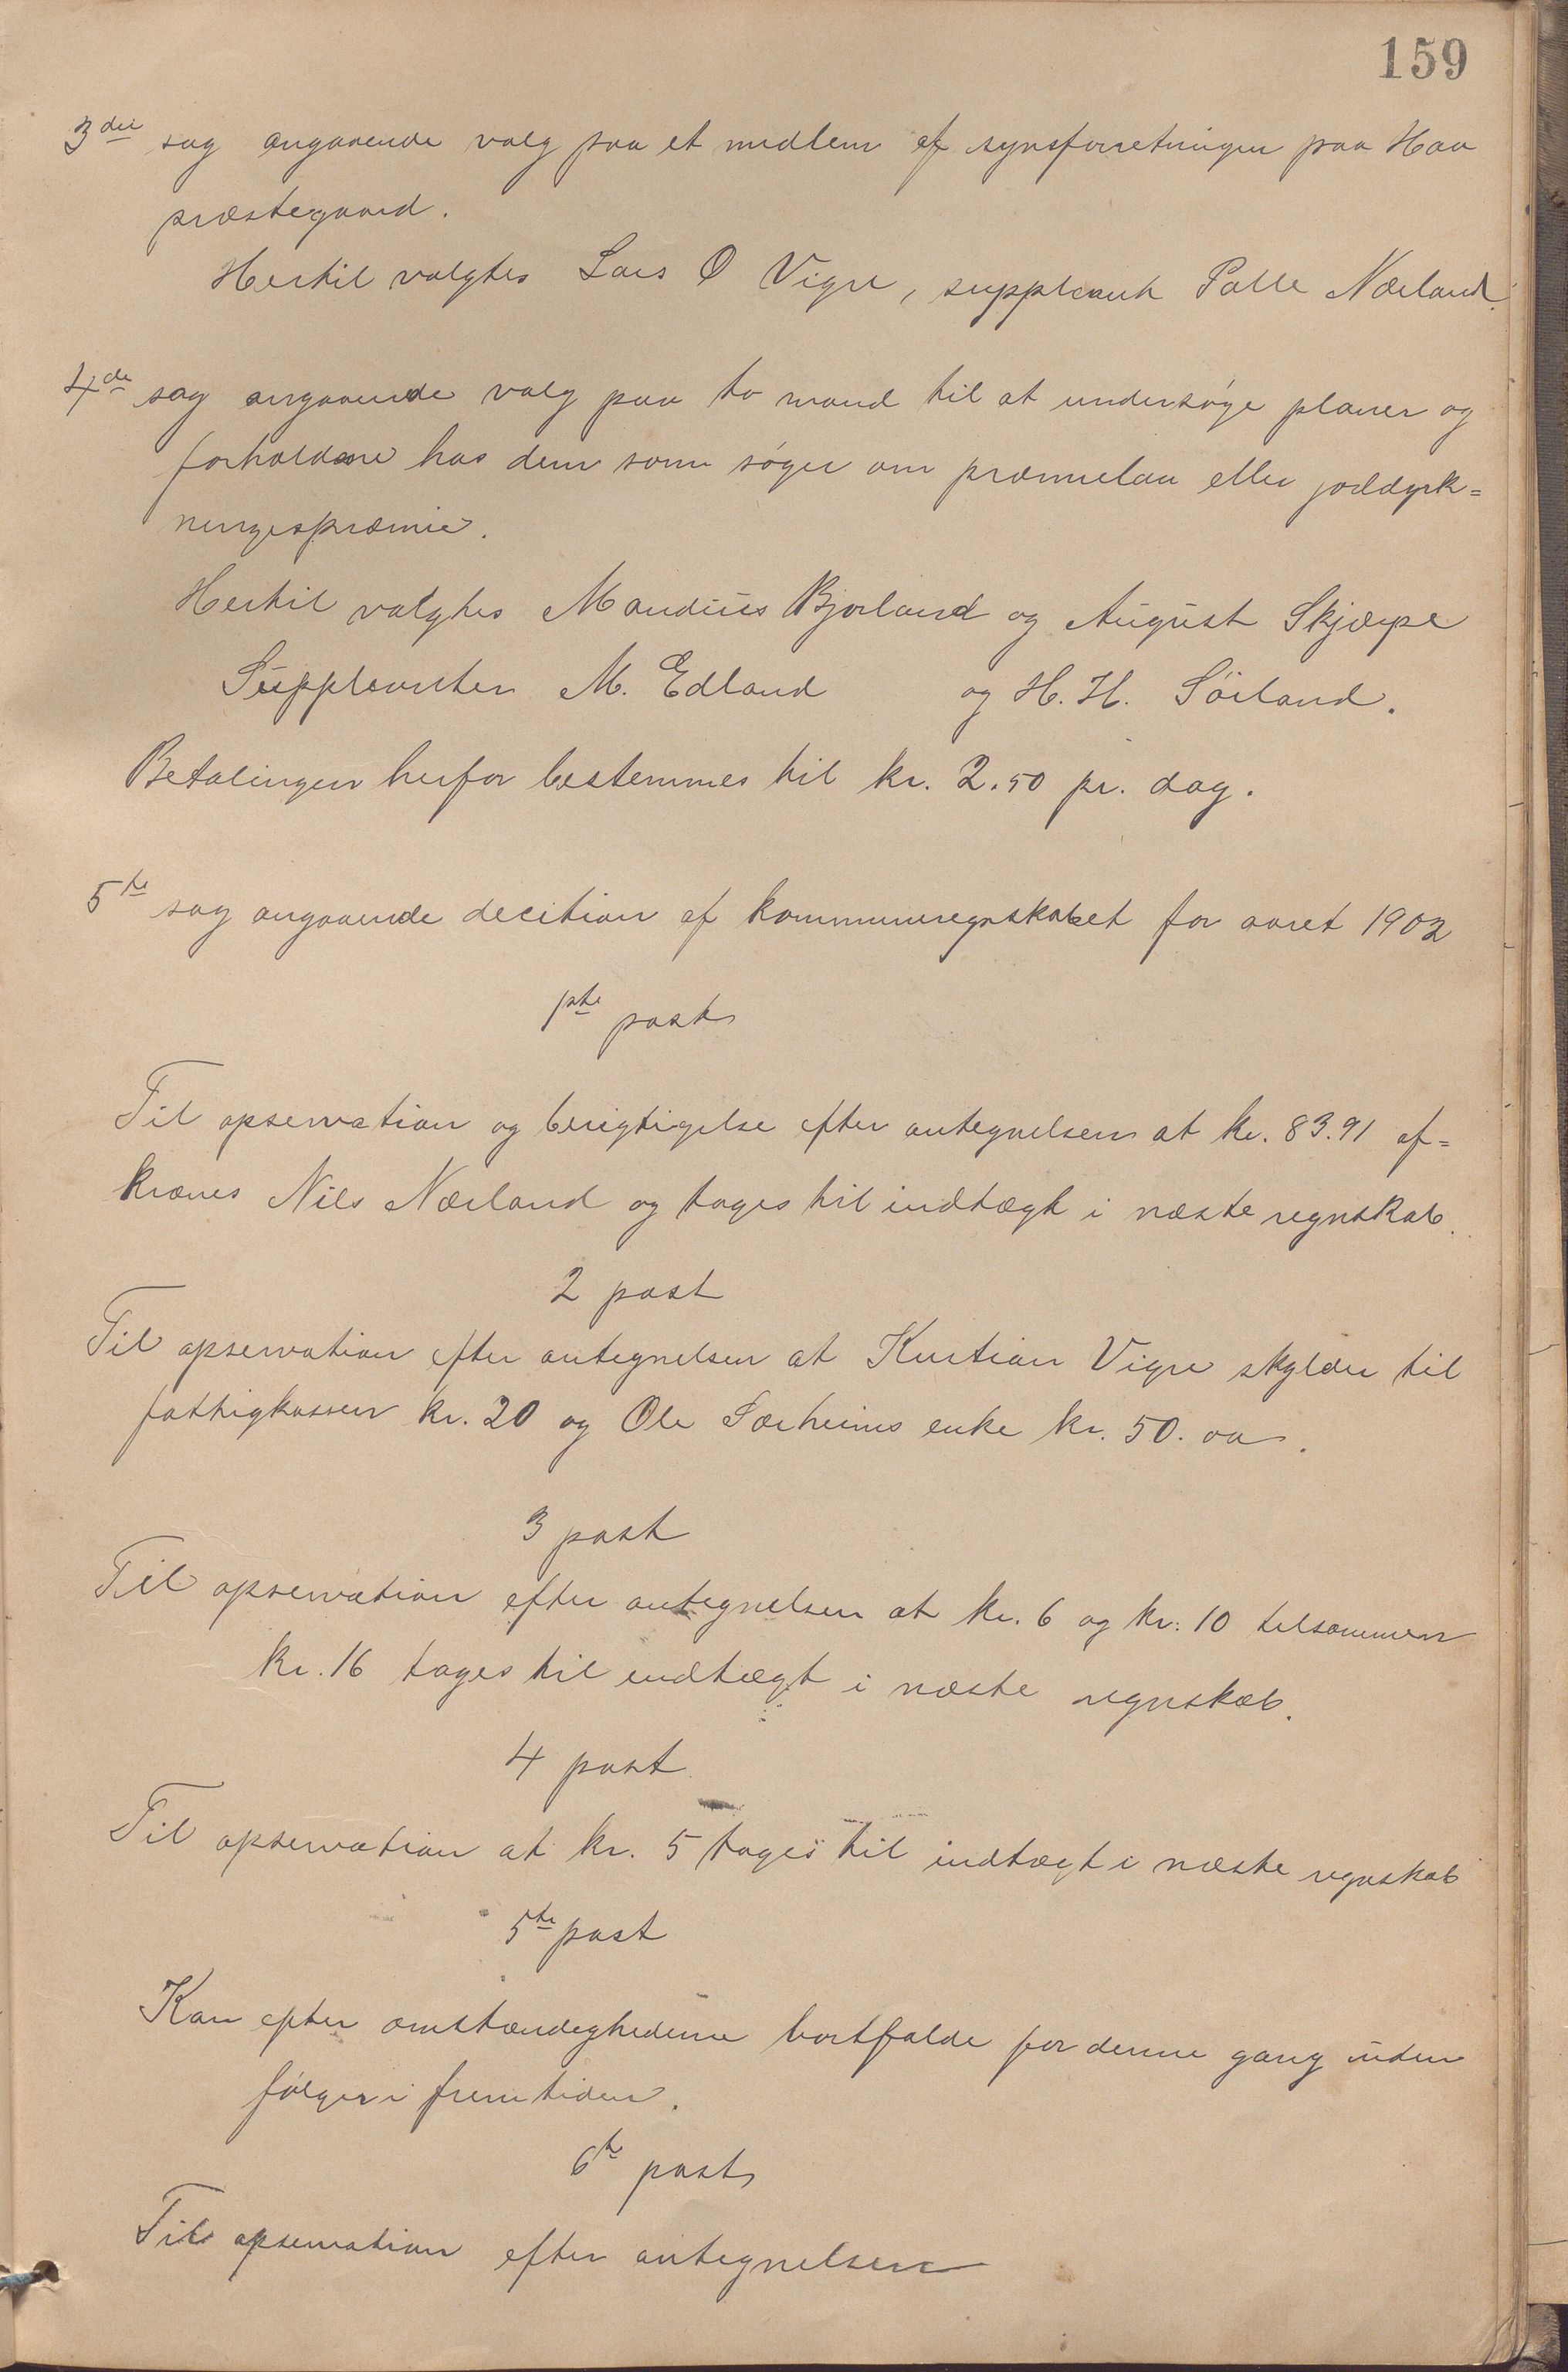 159
3die sag angaaende valg paa et medlem af synsforretningen paa Haa
præstegaard.
Hertil valgtes Lars O Vigre, suppleant Palle Nærland.
4de sag angaaende valg paa to mand til at undersøge planer og
forholdene hos dem som søger om præmielaan eller jorddyrk=
ningspræmie.
Hertil valgtes Maudius Bjorland og August Skjæpe
Suppleanter M. Edland og H. H. Sörland.
Betalingen herfor bestemmes til kr. 2.50 pr. dag.
5te sag angaaende decition af kommuneregnskabet for aaret 1902
1ste post
Til opservation og berigtigelse efter antegnelsen at kr. 83.91 af=
kræves Nils Nærland og tages til indtægt i næste regnskab.
2 post
Til opservation efter antegnelsen at Kristian Vigre skylder til
fattigkassen kr. 20 og Ole Særheims enke kr. 50. oa.
3 post
Til opservation efter antegnelsen at kr. 6 og kr. 10 tilsammen
kr. 16 tages til indtægt i næste regnskab.
4 post
Til opservation at kr. 5 tages til indtægt i næste regnskab
5te post
Kan efter omstændighederne bortfalde for denne gang uden
følger i fremtiden.
6te post
Til opservation efter antegnelsen